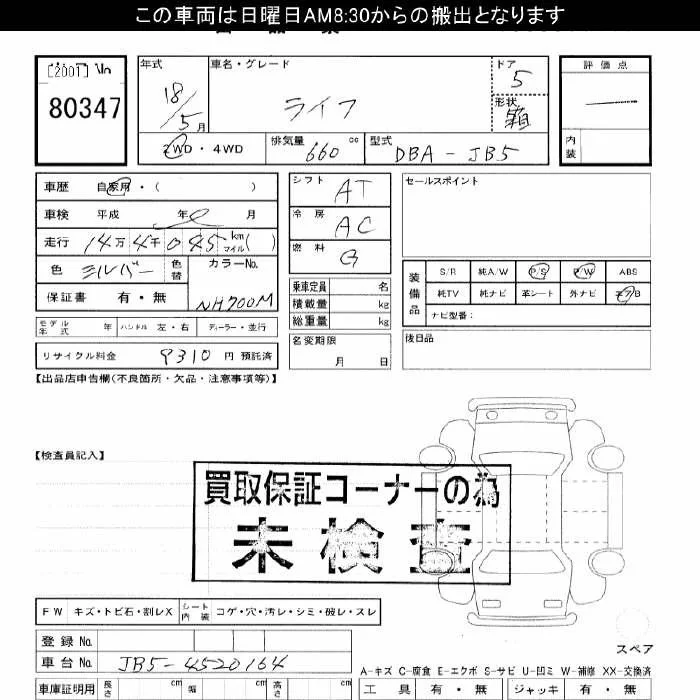 この車両は日曜日AM8:30からの搬出となります
[2001] No
80347
年式 18/5月
車名・グレード ライフ
ドア 5
形状 箱
評価点
内装
2WD・4WD
排気量 660 cc
型式 DBA-JB5
車歴 自家用・( )
車検 平成 年 月
走行 14万4千045 km マイル( )
色 シルバー
色替
カラーNo. NH700M
保証書 有・無
シフト AT
冷房 AC
燃料 G
乗車定員 名
積載量 kg
総重量 kg
セールスポイント
装備品
S/R 純A/W P/S P/W ABS
純TV 純ナビ 革シート 外ナビ エアB
ナビ型番:
モデル年式 年 ハンドル 左・右 ディーラー・並行
名変期限 月 日
後日品
リサイクル料金 9310 円 預託済
【出品店申告欄(不良箇所・欠品・注意事項等)】
【検査員記入】
買取保証コーナーの為
未検査
FW キズ・トビ石・割レX
シート内装 コゲ・穴・汚レ・シミ・破レ・スレ
登録No.
車台No. JB5-4520164
スペア
A-キズ C-腐食 E-エクボ S-サビ U-凹ミ W-補修 XX-交換済
車庫証明用 長さ cm 幅 cm 高さ cm
工具 有・無 ジャッキ 有・無